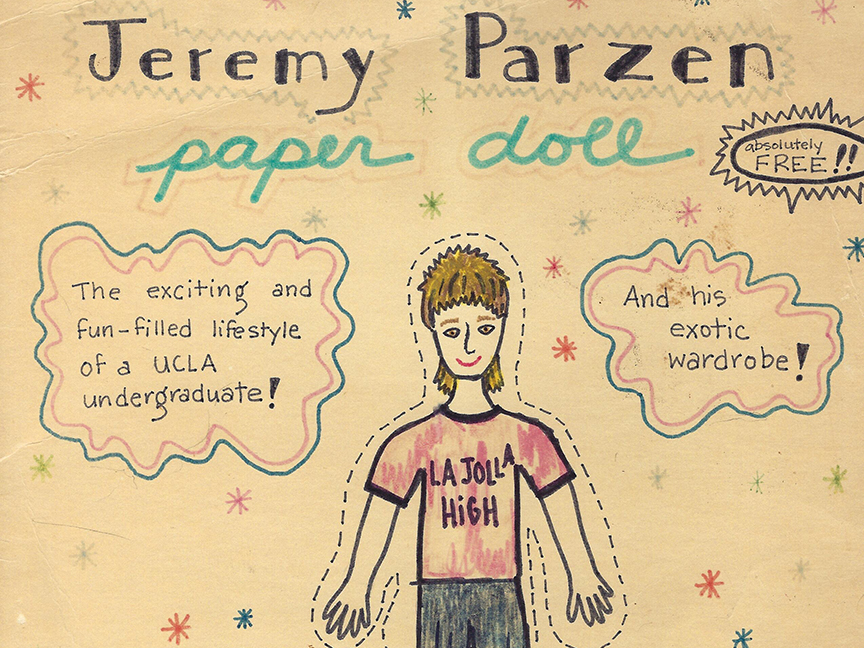 Jeremy Parzen
paper doll
absolutely
FREE!!
The exciting and
fun-filled lifestyle
of a UCLA
undergraduate!
And his
exotic
wardrobe!
LA JOLLA
HiGH